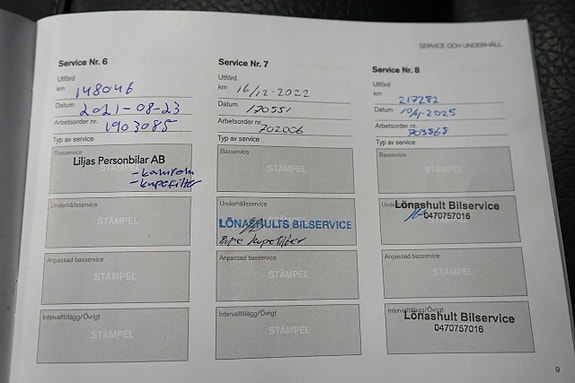 SERVICE OCH UNDERHÅLL
Service Nr. 6
Utförd
km 148046
Datum 2021-08-23
Arbetsorder nr. 1903085
Typ av service
Basservice
Liljas Personbilar AB
STÄMPEL
- kamrem
- kupefilter
Underhållsservice
STÄMPEL
Anpassad basservice
STÄMPEL
Intervalltillägg/Övrigt
STÄMPEL
Service Nr. 7
Utförd
km 16/12-2022
Datum 170551
Arbetsorder nr. 702006
Typ av service
Basservice
STÄMPEL
Underhållsservice
LÖNASHULTS BILSERVICE
kupefilter
Anpassad basservice
STÄMPEL
Intervalltillägg/Övrigt
STÄMPEL
Service Nr. 8
Utförd
km 217282
Datum 10/4-2025
Arbetsorder nr. 703568
Typ av service
Basservice
STÄMPEL
Underhållsservice
Lönashult Bilservice
0470757016
Anpassad basservice
STÄMPEL
Intervalltillägg/Övrigt
Lönashult Bilservice
0470757016
9